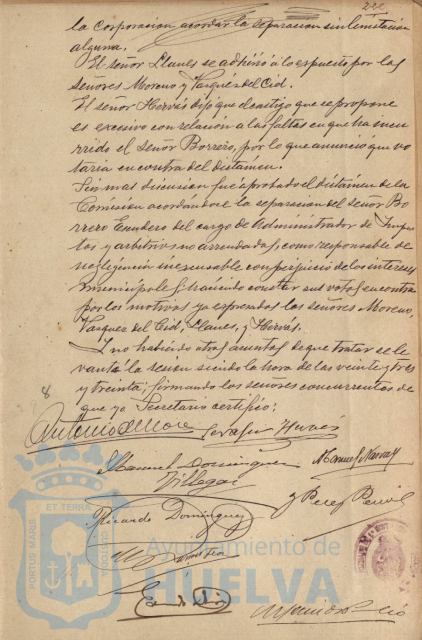 la Corporacion acordar la separacion sin limitacion
alguna.
El señor Llanes se adhirió á lo expuesto por los
señores Moreno y Vazquez del Cid.
El señor Hervás dijo que el castigo que se propone
es excesivo con relación a las faltas en que ha incu
rrido el señor Borrero, por lo que anunció que vo
taria en contra del dictámen.
Sin mas discusion fué aprobado el dictámen de la
Comisión acordándose la separación del señor Bo
rrero Escudero del cargo de Administrador de Impues
tos y arbitrios no arrendados, como responsable de
negligencia inexcusable con perjuicio de los intereses
municipales, haciendo constar sus votos en contra
por los motivos ya expresados los señores Moreno,
Vazquez del Cid, Llanes, y Hervás.
Y no habiendo otros asuntos de que tratar se le
vantó la sesion siendo la hora de las veinte y tres
y treinta, firmando los señores concurrentes de
que yo Secretario certifico:
Antonio de Mora Serafin Hervás
Manuel Dominguez Manuel
Villegas
J Perez
Ricardo Dominguez
PORTUS MARIS ET TERRAE CUSTODIA
Ayuntamiento de
HUELVA